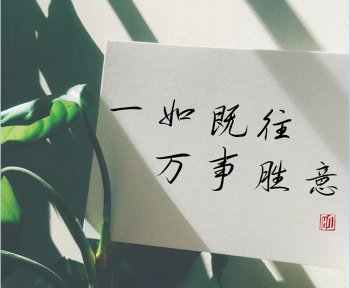 一如既往
万事胜意